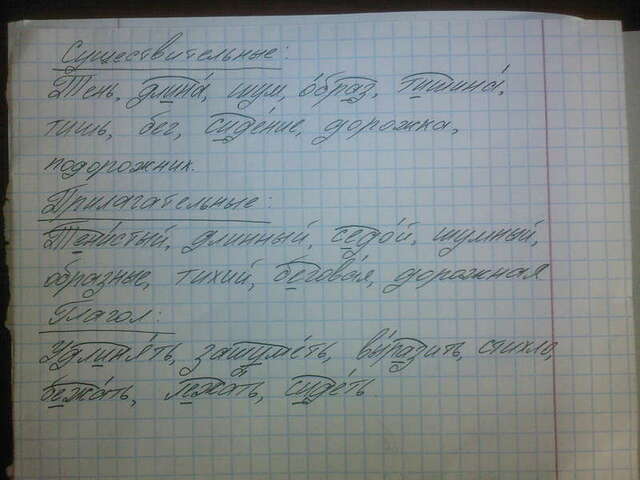 Существительные:
Тень, длина́, шум, о́браз, тишина́,
тишь, бег, сиде́ние, дорожка,
подорожник.
Прилагательные:
Тени́стый, длинный, седо́й, шумный,
образные, тихий, бегова́я, дорожная
Глагол:
Удлиня́ть, зашуме́ть, вы́разить, стихло,
бежа́ть, лежа́ть, сиде́ть.